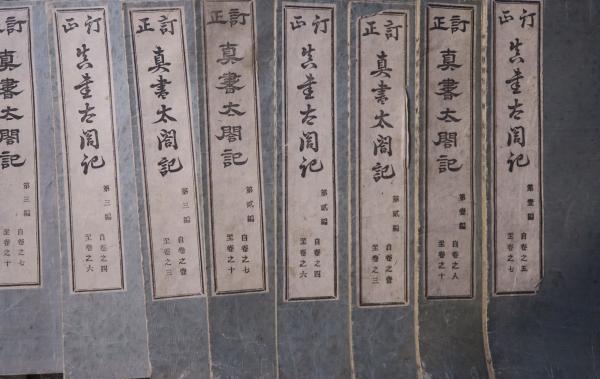 訂正
真書太閤記
第壹編
自卷之五
至卷之七
訂正
真書太閤記
第壹編
自卷之八
至卷之十
訂正
真書太閤記
第貳編
自卷之壹
至卷之三
訂正
真書太閤記
第貳編
自卷之四
至卷之六
訂正
真書太閤記
第貳編
自卷之七
至卷之十
訂正
真書太閤記
第三編
自卷之壹
至卷之三
訂正
真書太閤記
第三編
自卷之四
至卷之六
訂正
真書太閤記
第三編
自卷之七
至卷之十